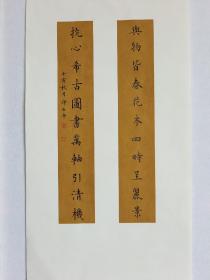 與物皆春花木四時呈麗景
抗心希古圖書萬軸引清機